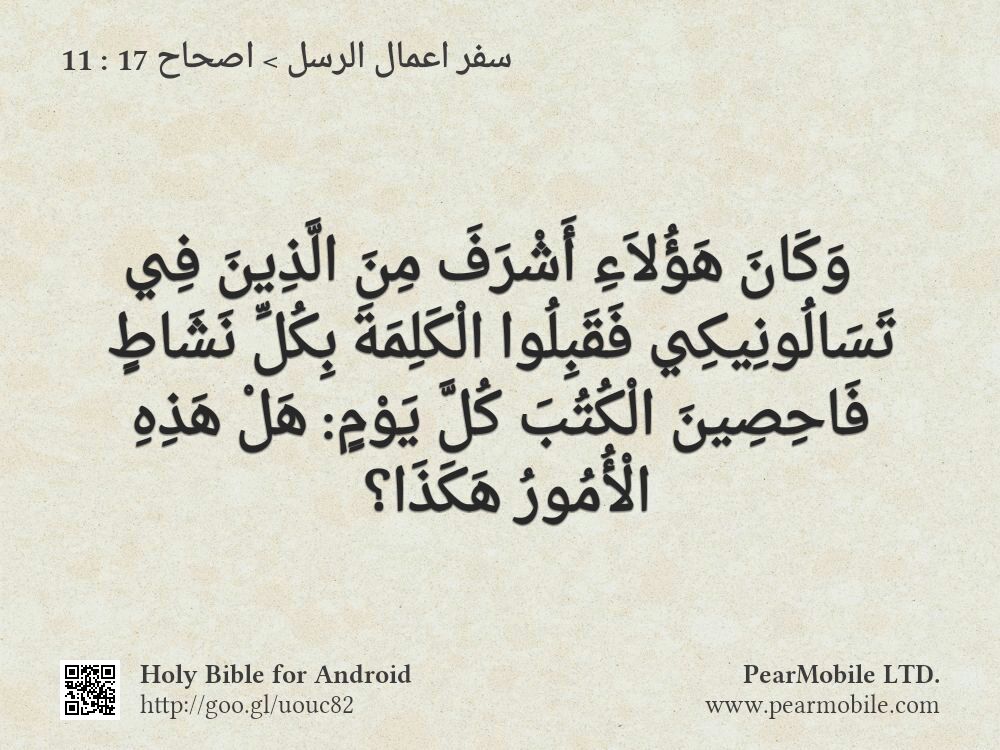 سفر اعمال الرسل > اصحاح 17 : 11
وَكَانَ هَؤُلاَءِ أَشْرَفَ مِنَ الَّذِينَ فِي
تَسَالُونِيكِي فَقَبِلُوا الْكَلِمَةَ بِكُلِّ نَشَاطٍ
فَاحِصِينَ الْكُتُبَ كُلَّ يَوْمٍ: هَلْ هَذِهِ
الْأُمُورُ هَكَذَا؟
Holy Bible for Android
http://goo.gl/uouc82
PearMobile LTD.
www.pearmobile.com